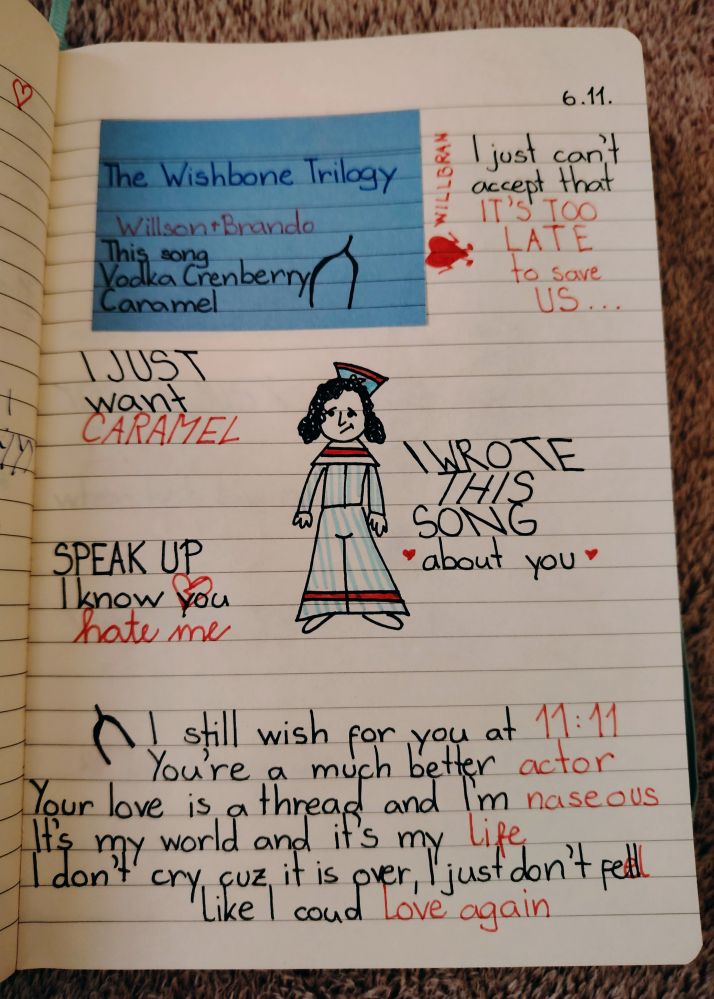 6.11.
The Wishbone Trilogy
Willson+Brando
This song
Vodka Crenberry
Caramel
WILLBRAN
I just can't
accept that
IT'S TOO
LATE
to save
US...
I JUST
want
CARAMEL
I WROTE
THIS
SONG
about you
SPEAK UP
I know you
hate me
I still wish for you at 11:11
You're a much better actor
Your love is a thread and I'm naseous
It's my world and it's my life
I don't cry cuz it is over, I just don't feel
like I coud love again